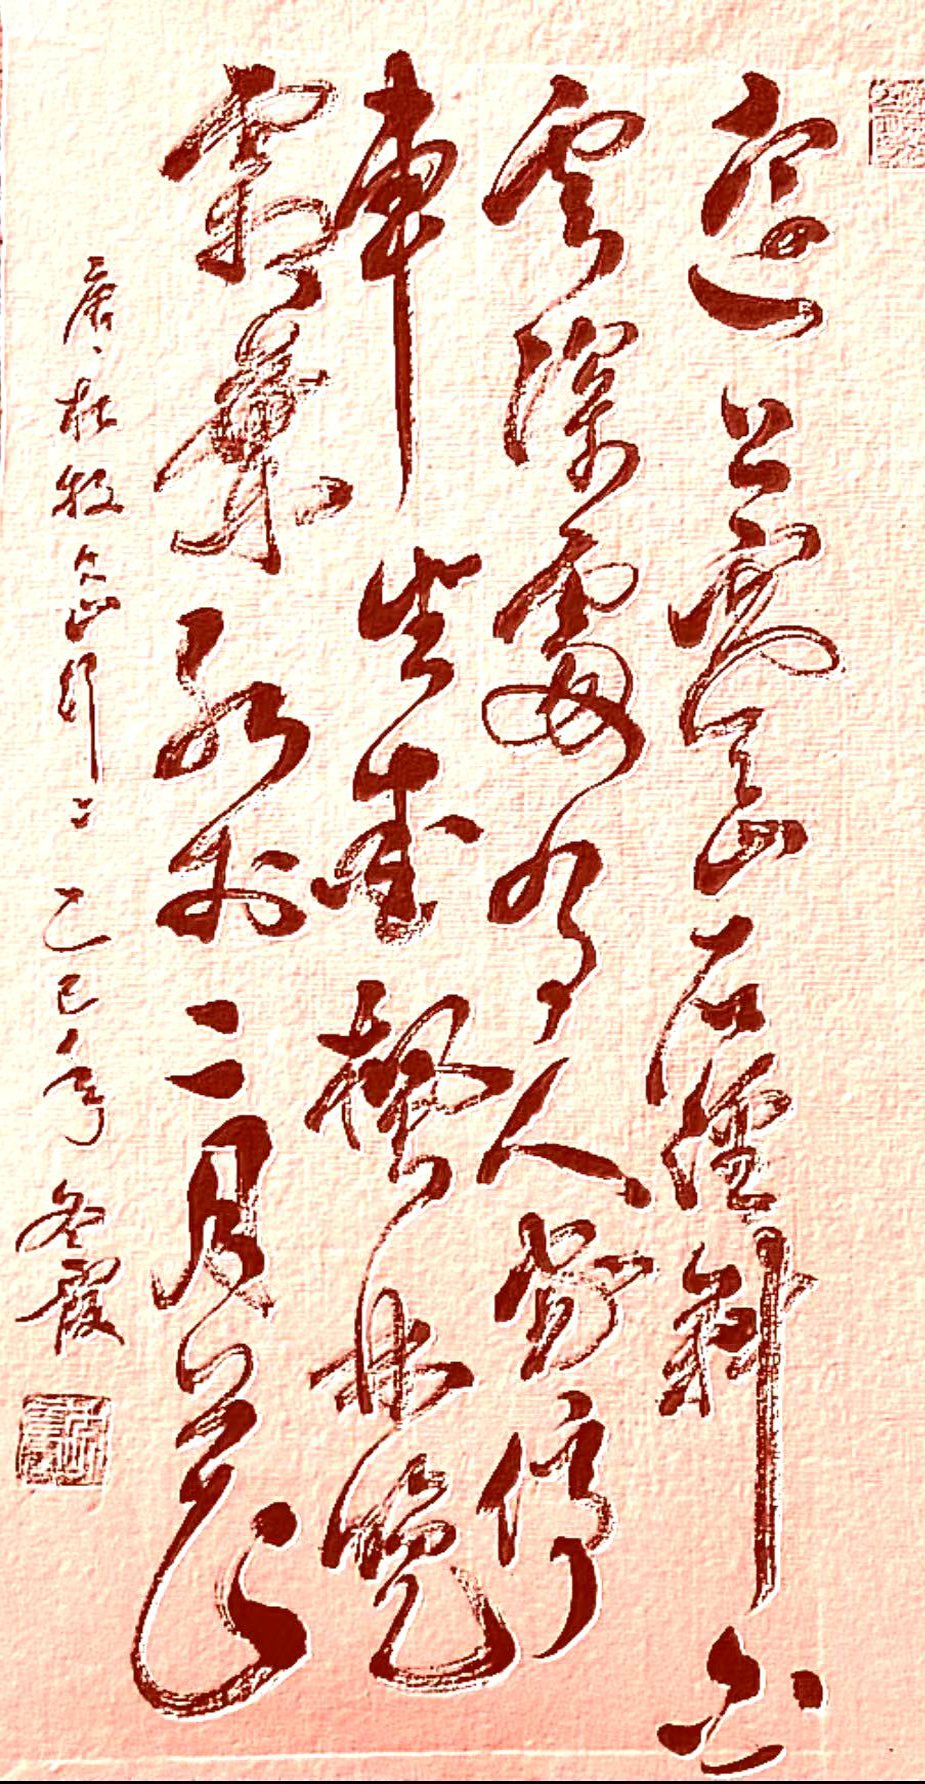 遠上寒山石徑斜白
雲深處有人家停
車坐愛楓林晚
霜葉紅於二月花
唐、杜牧《山行》乙巳年冬霞